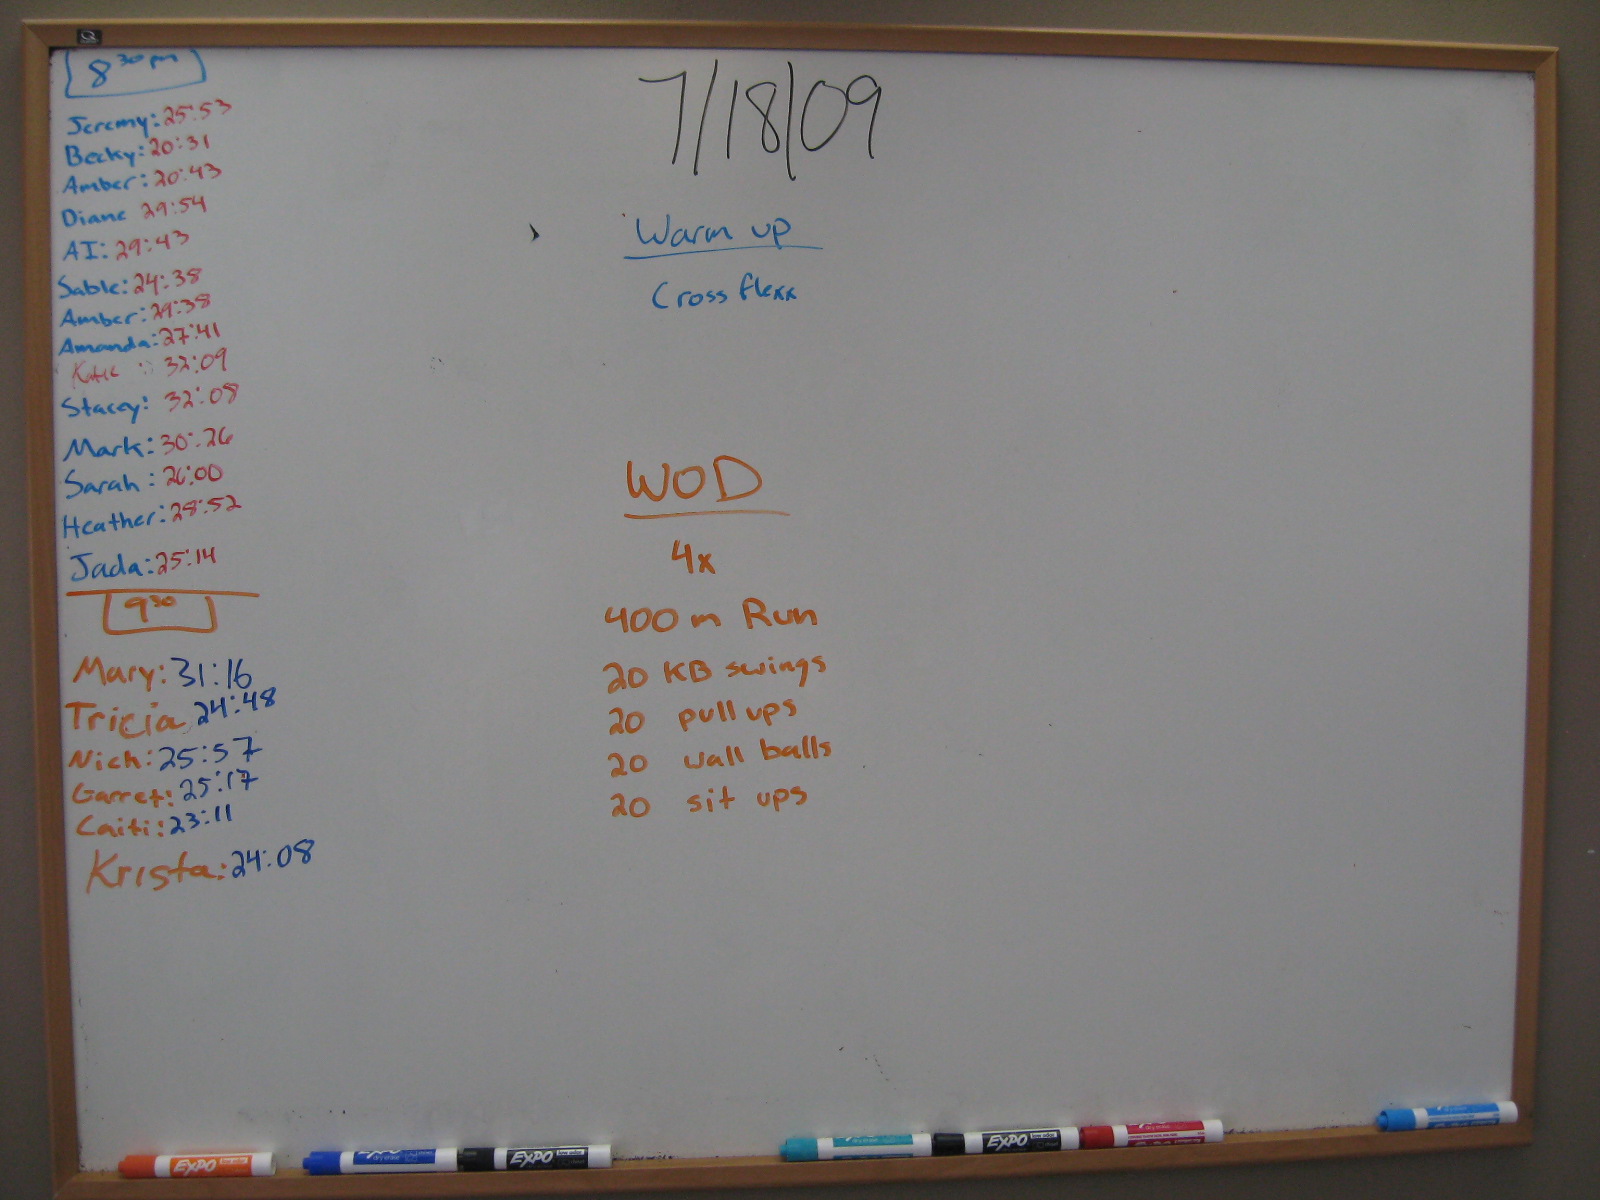 8 30 pm
Jeremy: 25:53
Becky: 20:31
Amber: 20:43
Diane 29:54
AI: 29:43
Sable: 24:38
Amber: 29:38
Amanda: 27:41
Katie : 32:09
Stacey: 32:08
Mark: 30:26
Sarah: 26:00
Heather: 28:52
Jada: 25:14
9 30
Mary: 31:16
Tricia 24:48
Nich: 25:57
Garret: 25:17
Caiti: 23:11
Krista: 24:08
7/18/09
Warm up
Cross flexx
WOD
4x
400 m Run
20 KB swings
20 pull ups
20 wall balls
20 sit ups
EXPO
EXPO
EXPO
EXPO